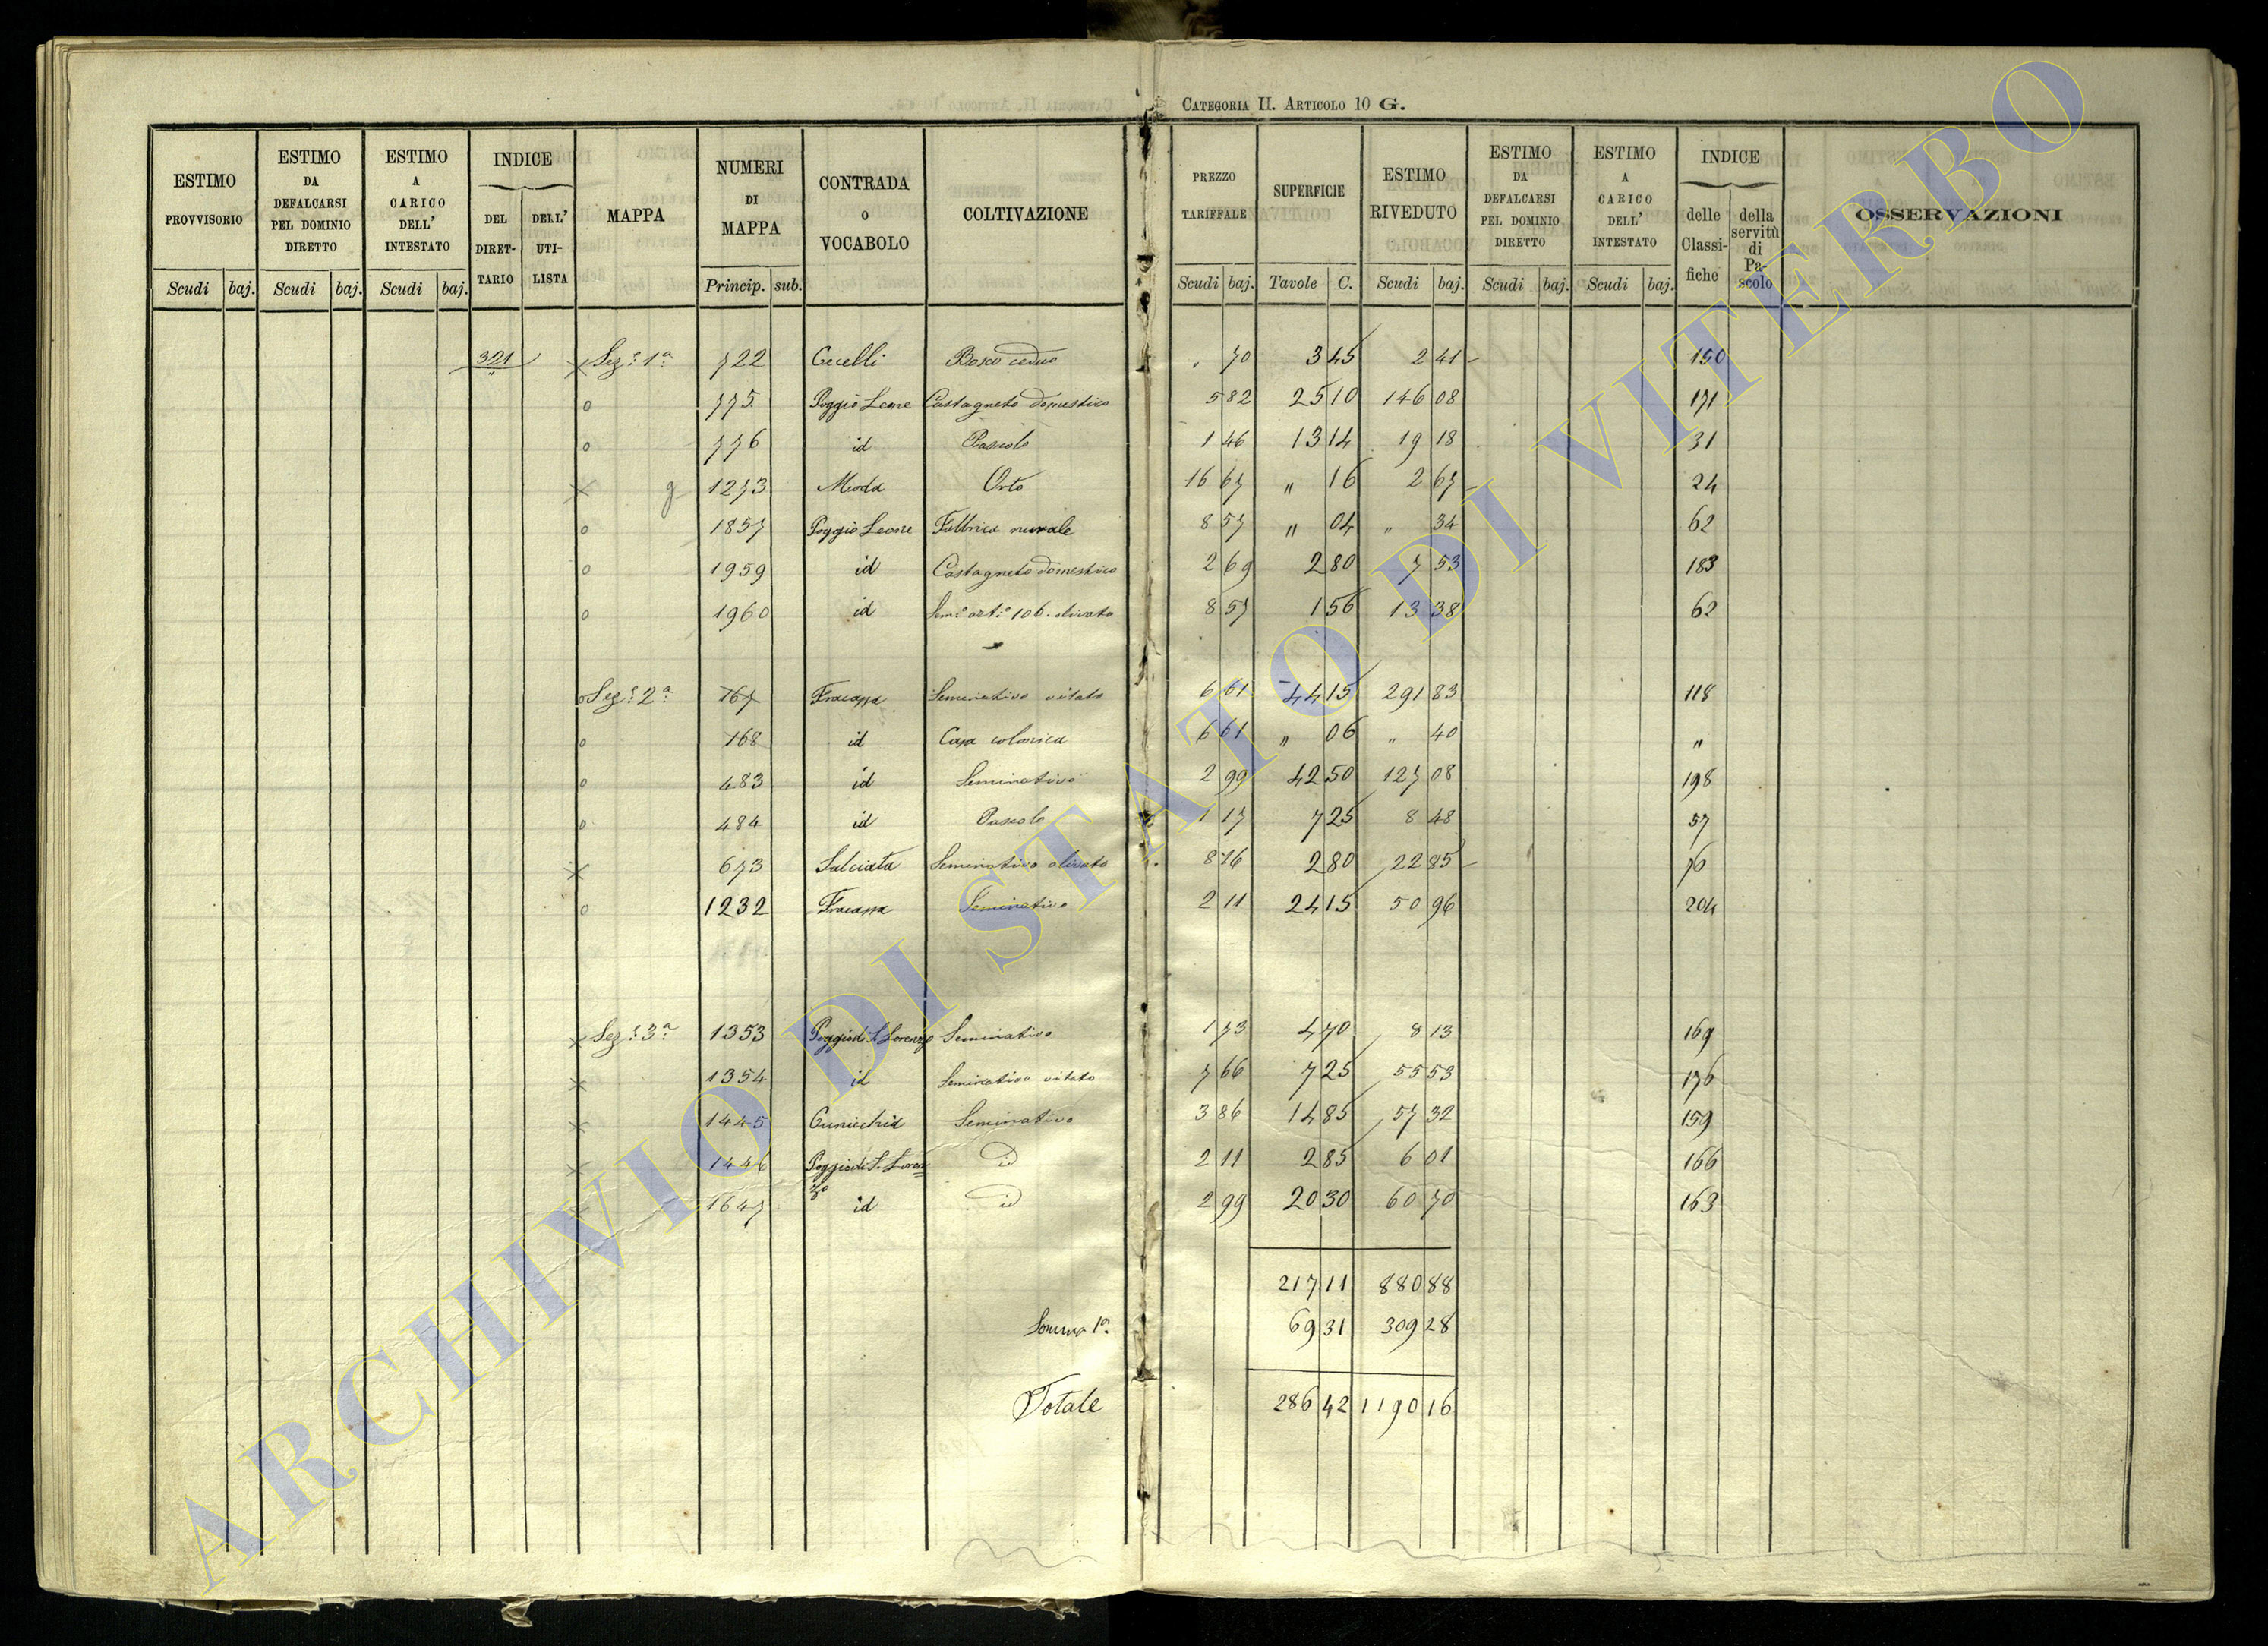 CATEGORIA II. ARTICOLO 10 G.
ESTIMO PROVVISORIO Scudi baj.
ESTIMO DA DEFALCARSI PEL DOMINIO DIRETTO Scudi baj.
ESTIMO A CARICO DELL' INTESTATO Scudi baj.
INDICE DEL DIRETTARIO DELL' UTILISTA
MAPPA
NUMERI DI MAPPA Princip. sub.
CONTRADA O VOCABOLO
COLTIVAZIONE
PREZZO TARIFFALE Scudi baj.
SUPERFICIE Tavole C.
ESTIMO RIVEDUTO Scudi baj.
ESTIMO DA DEFALCARSI PEL DOMINIO DIRETTO Scudi baj.
ESTIMO A CARICO DELL' INTESTATO Scudi baj.
INDICE delle Classifiche della servitù di Pascolo
OSSERVAZIONI
321 x Sez.e 1a 722 Cecelli Bosco ceduo " 70 3 45 2 41 150
o 775 Poggio Leone Castagneto domestico 5 82 25 10 146 08 171
o 776 id Pascolo 1 46 13 14 19 18 31
x g 1273 Orto 16 67 " 16 2 67 24
o 1857 Poggio Leone Fabbrica rurale 8 57 " 04 " 34 62
o 1959 id Castagneto domestico 2 69 2 80 7 53 183
o 1960 id Sem.o art.o 106. olivato 8 57 1 56 13 38 62
o Sez.e 2a 167 Fracassa Seminativo vitato 6 61 44 15 291 83 118
o 168 id Casa colonica 6 61 " 06 " 40 "
o 483 id Seminativo 2 99 42 50 127 08 198
o 484 id Pascolo 1 17 7 25 8 48 57
x 673 Salciata Seminativo olivato 8 16 2 80 22 85 76
o 1232 Fracassa Seminativo 2 11 24 15 50 96 204
x Sez.e 3a 1353 Poggio di S. Lorenzo Seminativo 1 73 4 70 8 13 169
x 1354 id Seminativo vitato 7 66 7 25 55 53 176
x 1445 Cunicchia Seminativo 3 86 14 85 57 32 159
x 1446 Poggio di S. Lorenzo id 2 11 2 85 6 01 166
x 1647 id id 2 99 20 30 60 70 163
217 11 880 88
Somma 1a. 69 31 309 28
Totale 286 42 1190 16
ARCHIVIO DI STATO DI VITERBO